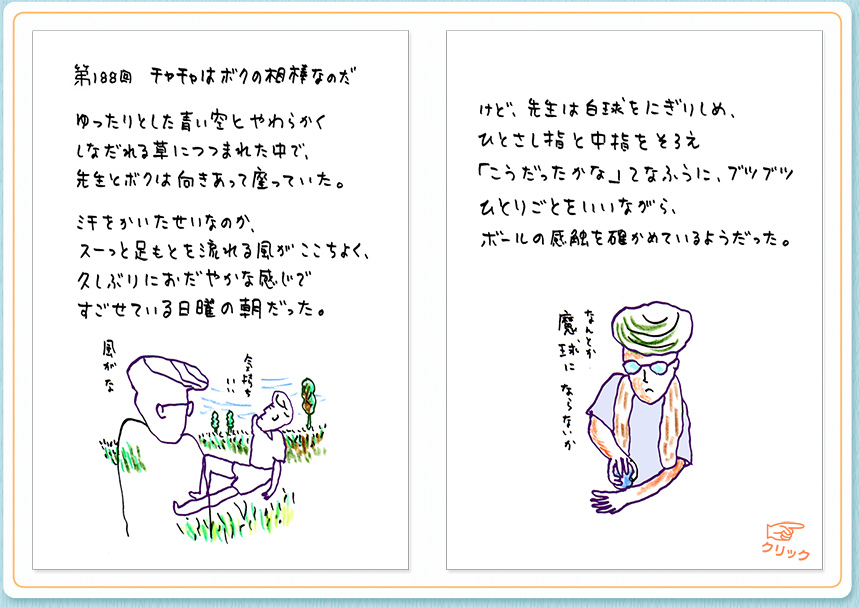 第188回 チャチャはボクの相棒なのだ
ゆったりとした青い空とやわらかく
しなだれる草につつまれた中で、
先生とボクは向きあって座っていた。
汗をかいたせいなのか、
スーっと足もとを流れる風がここちよく、
久しぶりにおだやかな感じで
すごせている日曜の朝だった。
風がな
気持ち
いい
けど、先生は白球をにぎりしめ、
ひとさし指と中指をそろえ
「こうだったかな」てなふうに、ブツブツ
ひとりごとをいいながら、
ボールの感触を確かめているようだった。
なんとか
魔球に
ならないか
クリック